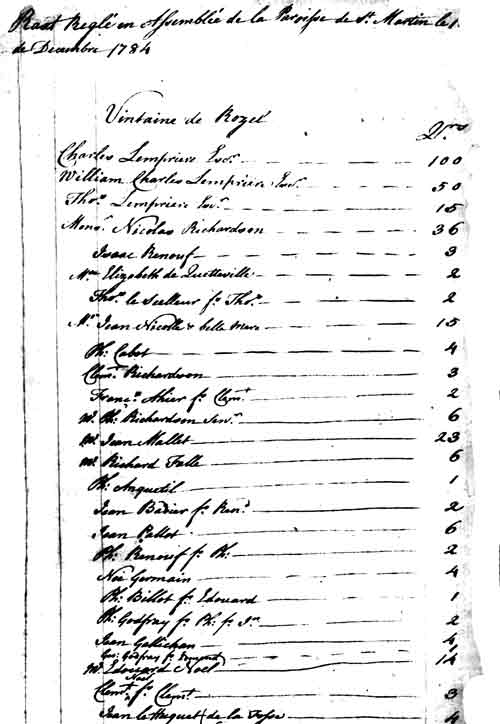 Raat Reglé en Assemblée de la Paroisse de St. Martin le 1.
de Decembre 1784
Vintaine de Rozel
Qrs
Charles Lempriere Esqr. 100
William Charles Lempriere Esqr. 50
Thos. Lempriere Esqr. 15
Monsr. Nicolas Richardson 36
Isaac Renouf 3
Mme Elizabeth de Quetteville 2
Thos. le Seelleur fs. Thos. 2
Mr. Jean Nicolle & belle mere 15
Ph: Cabot 4
Clemt. Richardson 3
Franc. Ahier fs. Clemt. 2
Mr. Ph: Richardson Senr. 6
Mr. Jean Mallet 23
Mr. Richard Falle 6
Ph: Anquetil 1
Jean Badier fs. Ren. 2
Jean Pallot 6
Ph: Renouf fs. Ph: 2
Noé Germain 4
Ph: Billot fs. Edouard 1
Ph: Godfray fs. Ph: fs. Jn. 2
Jean Gallichan 4
Godfray fs. 1
Mr. Edouard Noel 14
Noel
Clemt. fs. Clemt. 3
Jean le Huquet (de la Fosse 4